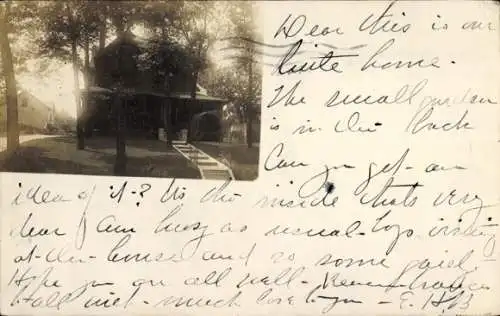 Dear this is our
little home.
The small garden
is in the back
Can you get an
idea of it? Its the inside thats very
dear Am busy as usual
at the house and so some
Hope you are all well -
to all with much love to you - E. H. B